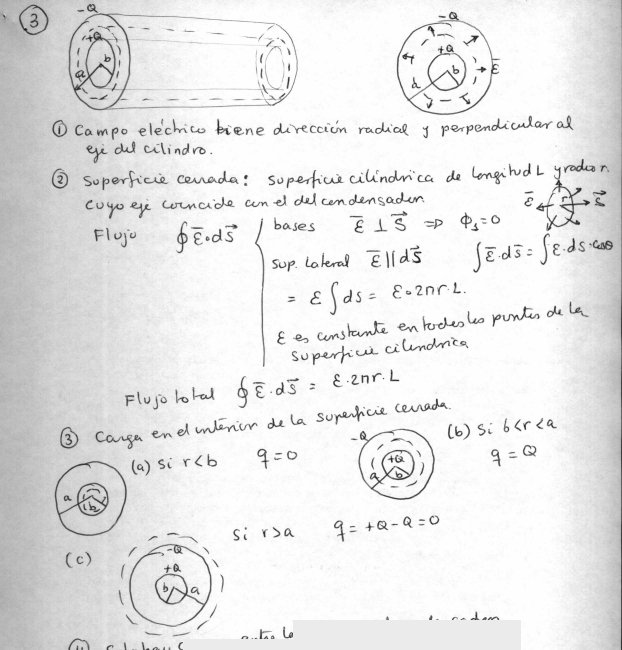 3
-Q
+Q
b
a
-Q
+Q
b
a
Ɛ
① Campo eléctrico tiene dirección radial y perpendicular al
eje del cilindro.
② Superficie cerrada: superficie cilíndrica de longitud L y radio r
cuyo eje coincide con el del condensador
Flujo ∮ Ɛ·dS
bases Ɛ ⊥ S ⇒ Φ₁=0
Ɛ r S
sup. lateral Ɛ || dS ∫Ɛ·dS = ∫Ɛ·dS·cosθ
= Ɛ ∫ dS = Ɛ·2πr·L.
Ɛ es constante en todos los puntos de la
superficie cilíndrica
Flujo total ∮ Ɛ·dS = Ɛ·2πr·L
③ Carga en el interior de la superficie cerrada.
(a) Si r<b q=0
a
b
-Q
+Q
a
b
(b) Si b<r<a
q=Q
(c)
-Q
+Q
b
a
si r>a q=+Q-Q=0